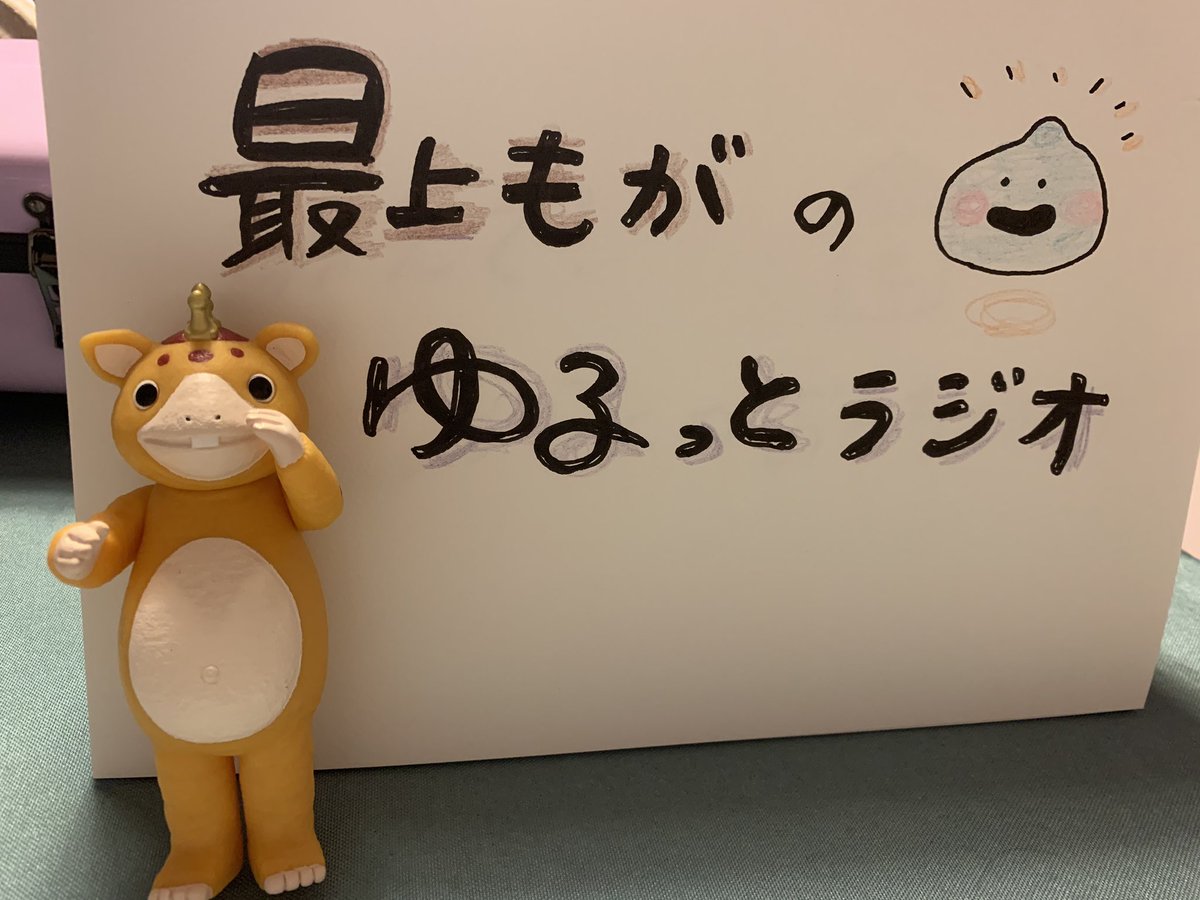 最上もがの
ゆるっとラジオ